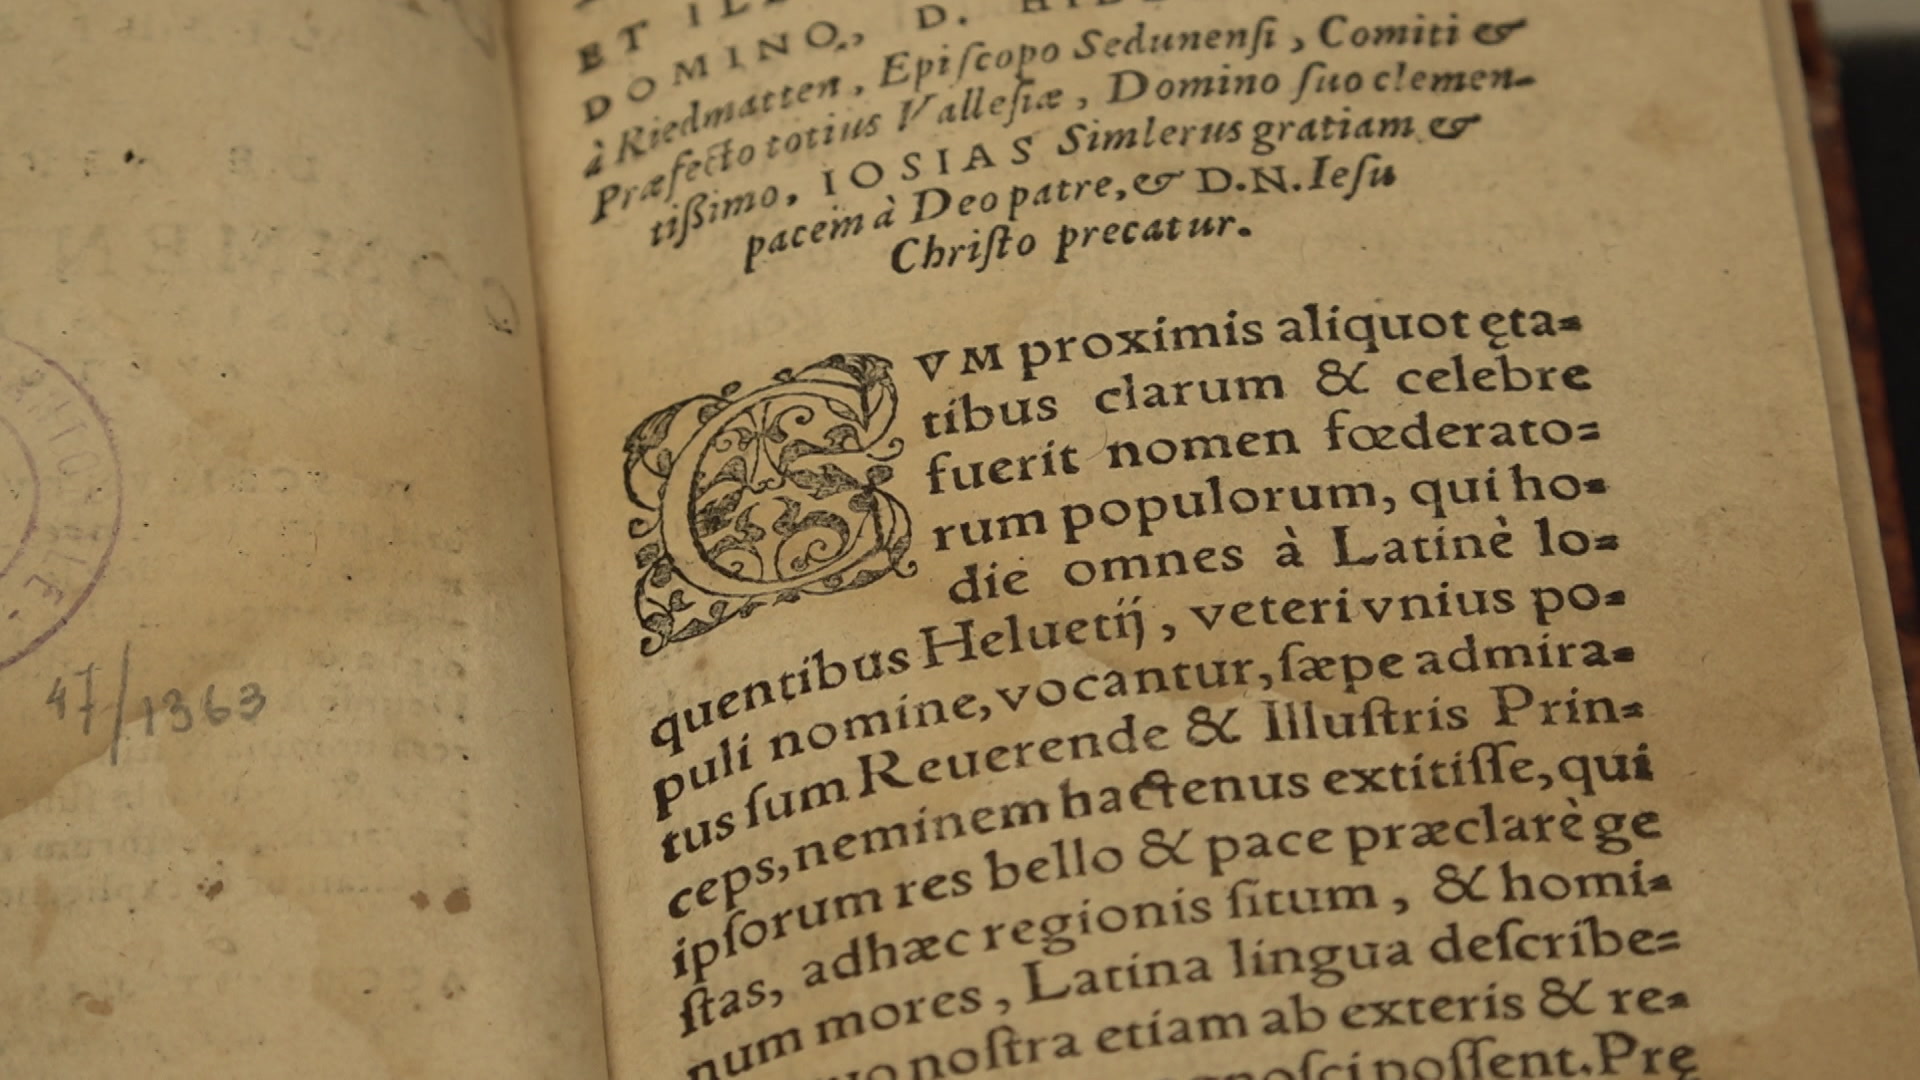 ET
DOMINO, D.
à Riedmatten, Epiſcopo Sedunenſi, Comiti &
Præfecto totius Valleſiæ, Domino ſuo clemen-
tißimo, IOSIAS Simlerus gratiam &
pacem à Deo patre, & D.N. Ieſu
Chriſto precatur.
CVM proximis aliquot ęta=
tibus clarum & celebre
fuerit nomen fœderato=
rum populorum, qui ho=
die omnes à Latinè lo=
quentibus Heluetij, veteri vnius po=
puli nomine, vocantur, ſæpe admira=
tus ſum Reuerende & Illuſtris Prin=
ceps, neminem hactenus extitiſſe, qui
ipſorum res bello & pace præclarè ge
ſtas, adhæc regionis ſitum, & homi=
num mores, Latina lingua deſcribe=
noſtra etiam ab exteris & re=
poſſent. Prę
47/1363